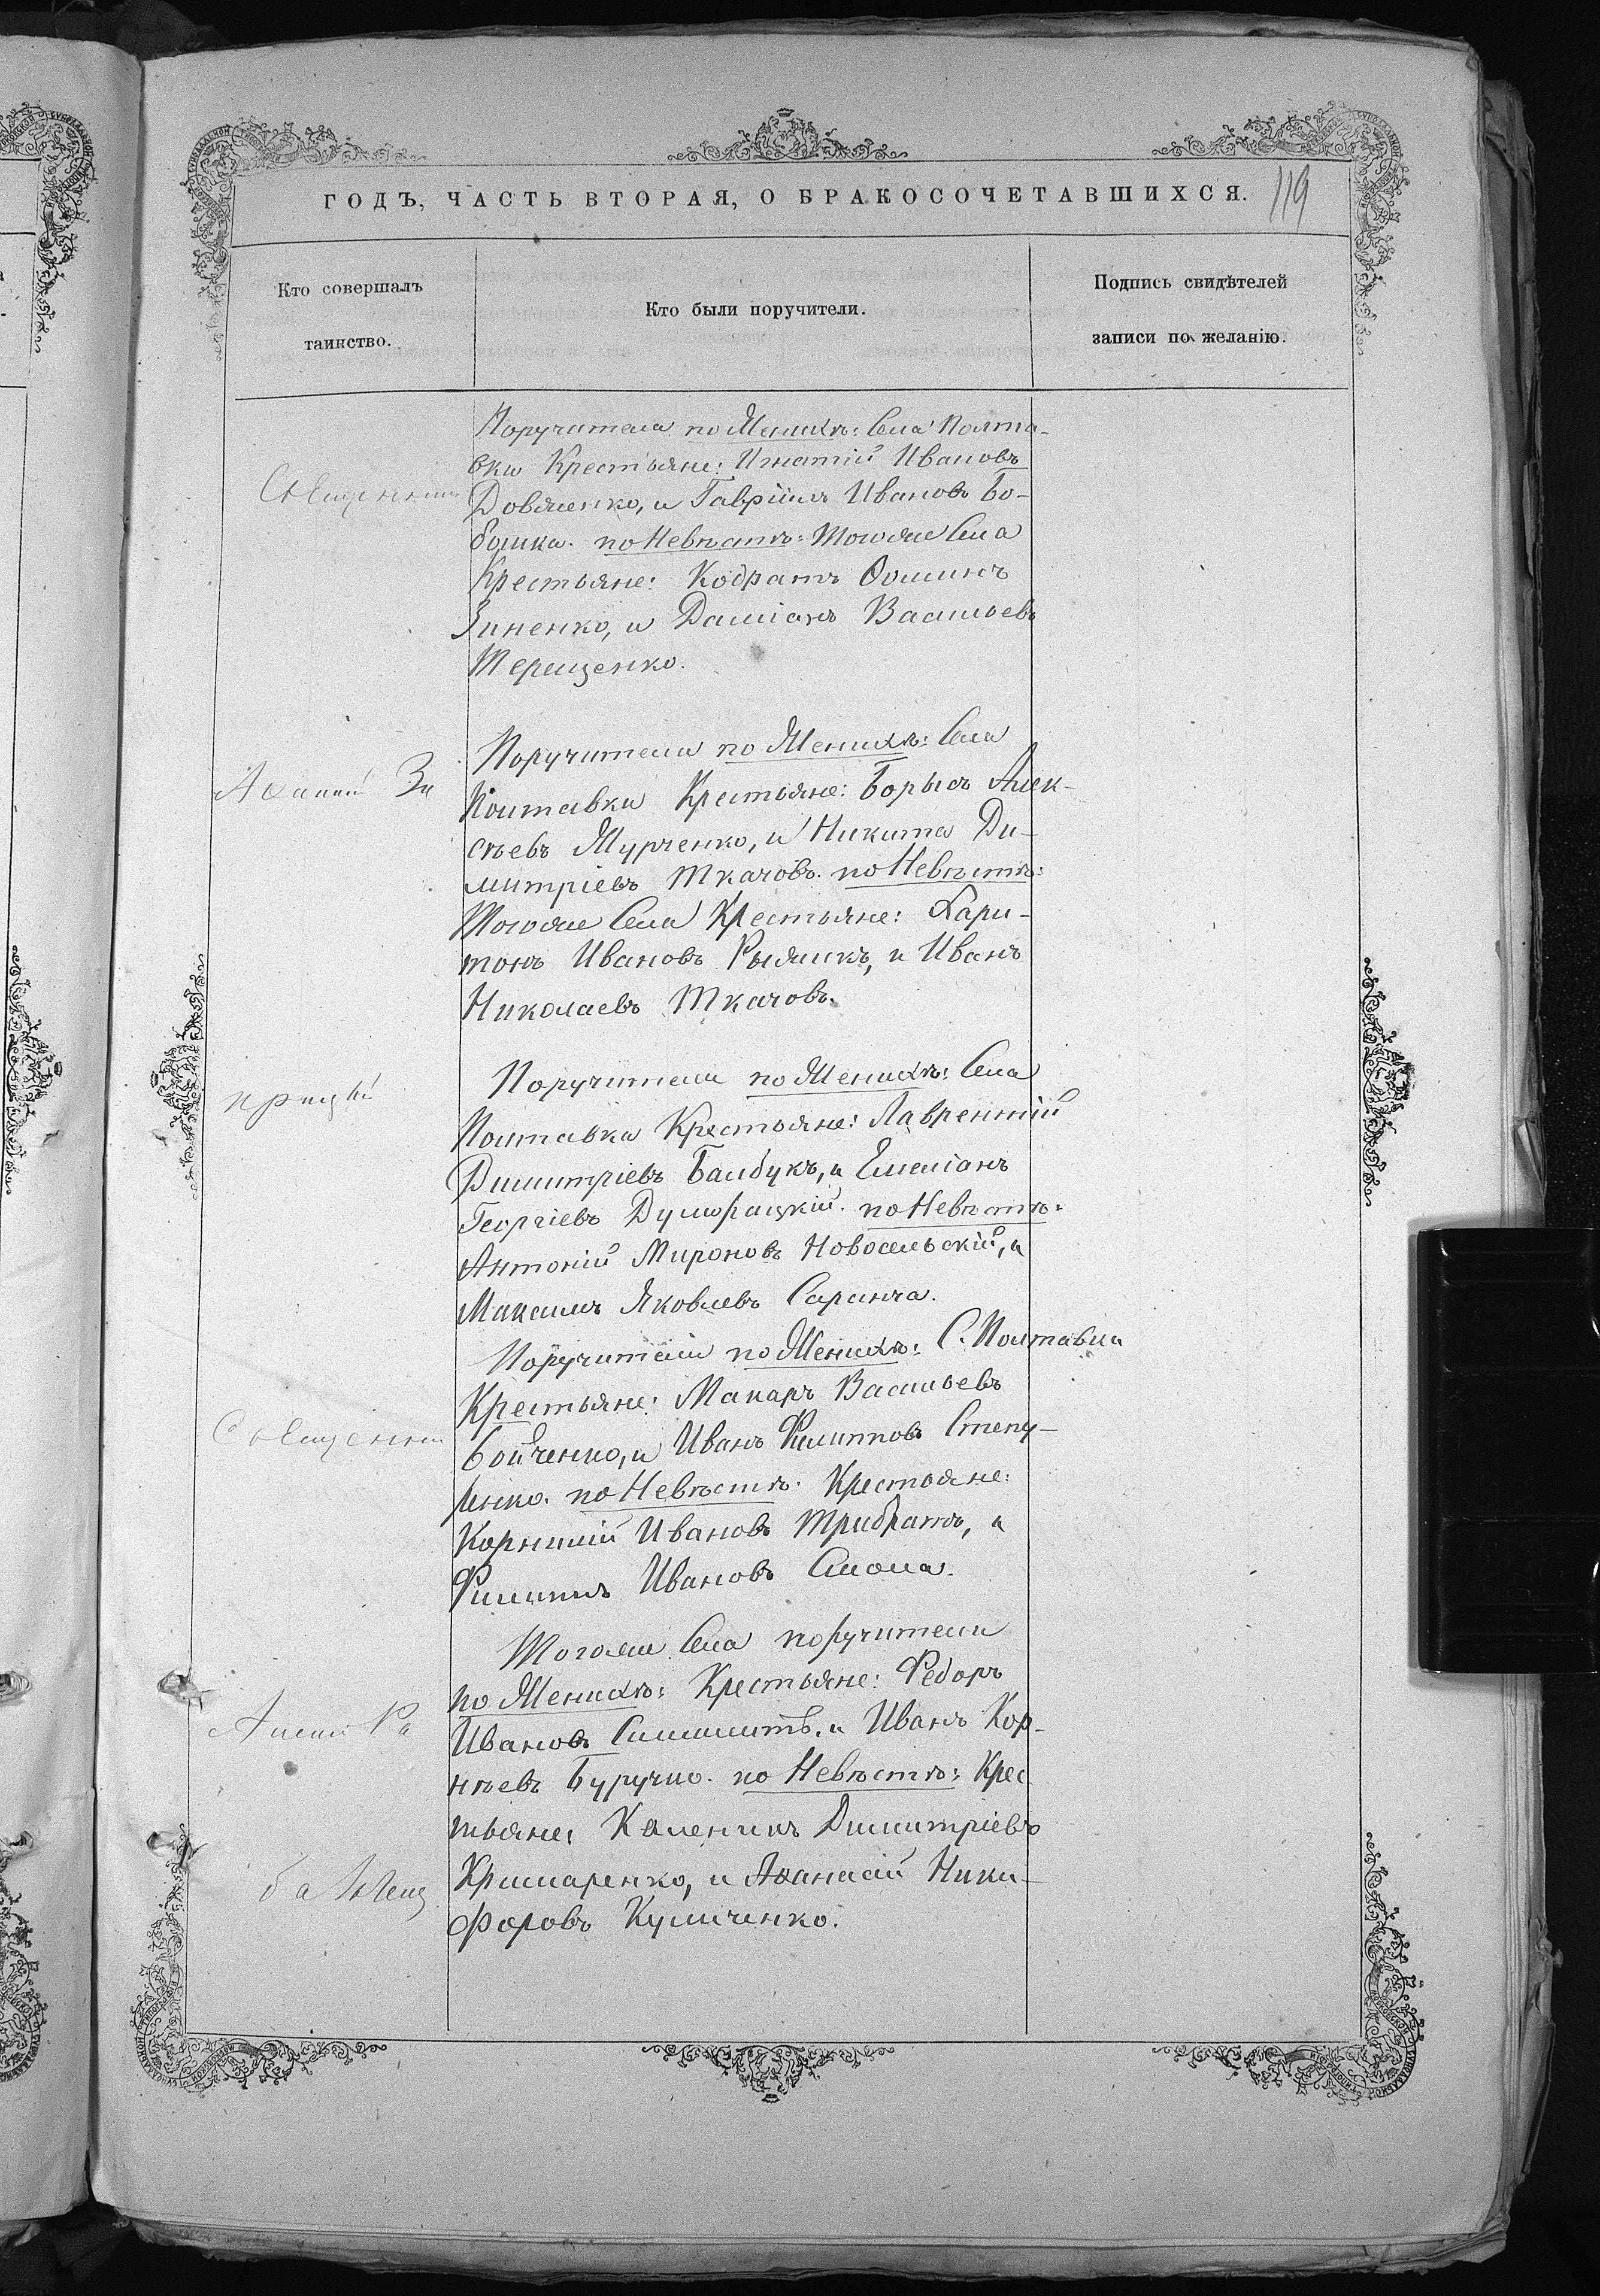 ГОДЪ, ЧАСТЬ ВТОРАЯ, О БРАКОСОЧЕТАВШИХСЯ. 119
Кто совершалъ
таинство.
Кто были поручители.
Подпись свидѣтелей
записи по желанію.
Поручители по Женихѣ: Села Полта-
вки Крестьяне: Игнатій Ивановъ
Довженко, и Гавріилъ Ивановъ Бо-
бошка. по Невѣстѣ: Тогоже Села
Крестьяне: Кодратъ Ѳоминъ
Зиненко, и Даміанъ Васильевъ
Терещенко.
Поручители по Женихѣ: Села
Полтавки Крестьяне: Борысъ Алек-
сѣевъ Журченко, и Никита Ди-
митріевъ Ткачовъ. по Невѣстѣ:
Тогоже Села Крестьяне: Хари-
тонъ Ивановъ Рыжикъ, и Иванъ
Николаевъ Ткачовъ.
Поручители по Женихѣ: Села
Полтавки Крестьяне: Лаврентій
Димитріевъ Балбукъ, и Емеліанъ
Георгіевъ по Невѣстѣ:
Антоній Мироновъ Новосельскій, и
Максимъ Яковлевъ Саранча.
Поручители по Женихѣ: С. Полтавки
Крестьяне: Макаръ Васильевъ
Бойченко, и Иванъ Филипповъ Степу-
ренко. по Невѣстѣ: Крестьяне:
Корнилій Ивановъ Трибратъ, и
Филиппъ Ивановъ Смола.
Тогоже Села поручители
по Женихѣ: Крестьяне: Ѳедоръ
Ивановъ и Иванъ Кор-
нѣевъ по Невѣстѣ: Крес
тьяне: Каленикъ Димитріевъ
Кришаренко, и Аѳанасій Ники-
форовъ Куличенко.
Священникъ
За
прицкій
Священник